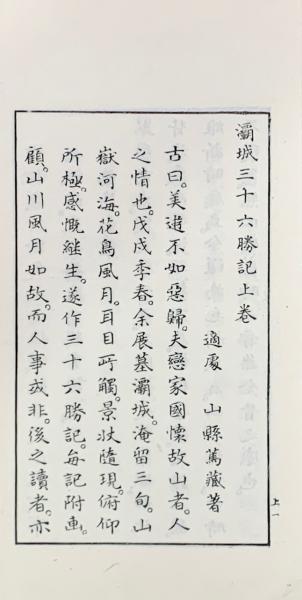 灞城三十六勝記上卷
適處 山縣篤藏著
古曰。美遊不如惡歸。夫戀家國懷故山者。人
之情也。戊戌季春。余展墓灞城。淹留三旬。山
嶽河海。花鳥風月。耳目所觸。景狀隨現。俯仰
所極。感慨繼生。遂作三十六勝記。每記附畫。
顧山川風月如故。而人事或非。後之讀者。亦
上一